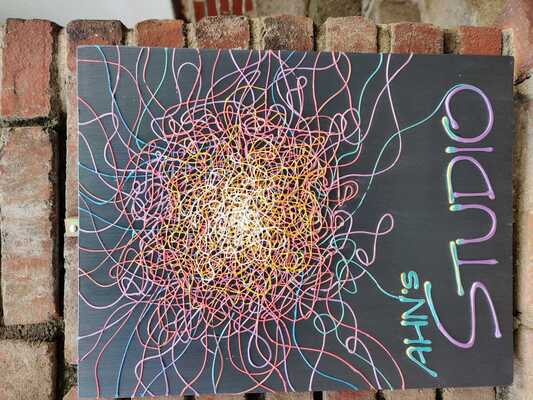 AHN'S
STUDIO